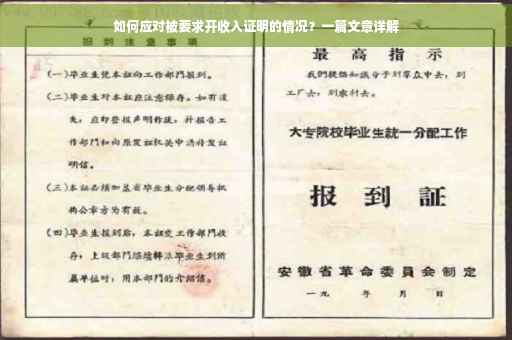 如何应对被要求开收入证明的情况？一篇文章详解
报到注意事项
(一)毕业生凭本证向工作部门报到。
(二)毕业生对本证应注意保存。如有遗
失，应即登报声明作废，并报告工
作部门和向原发证机关申请补发证
明信。
(三)本证必须加盖省毕业生分配领导机
构公章方为有效。
(四)毕业生报到后，本证交工作部门收
存；上级部门
毕业生到所
属单位时，用本部门的介绍信。
最高指示
我们提倡知识分子到群众中去，到
工厂去，到农村去。
大专院校毕业生統一分配工作
报到証
安徽省革命委員会制定
一九 年 月 日